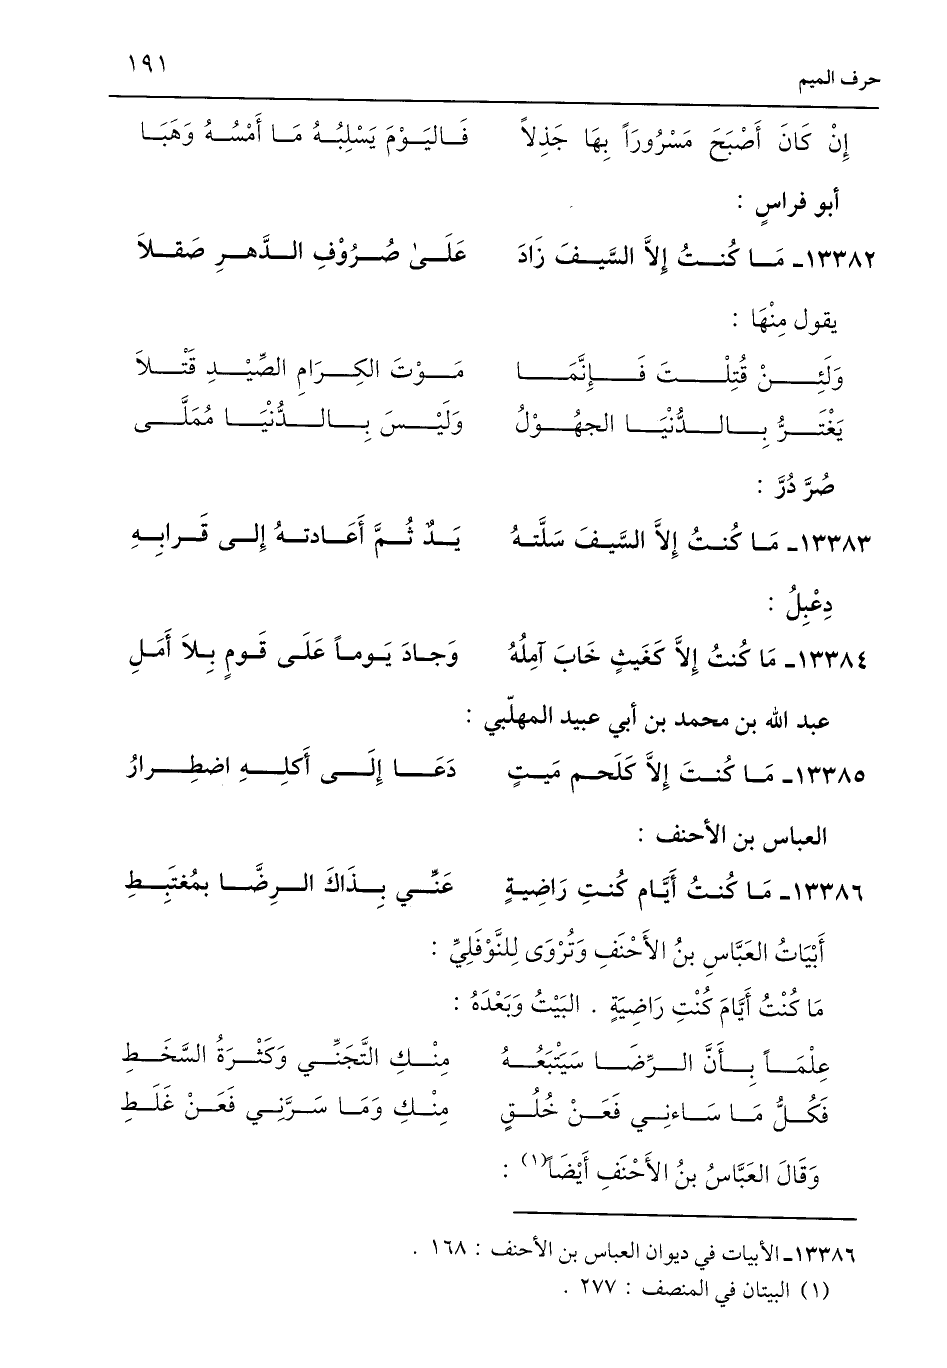 حرف الميم ١٩١
إِنْ كَانَ أَصْبَحَ مَسْرُورَاً بِهَا جَذِلاً فَاليَوْمَ يَسْلِبُهُ مَا أَمْسُهُ وَهَبَا
أبو فراسٍ :
١٣٣٨٢ـ مَا كُنتُ إِلاَّ السَّيفَ زَادَ عَلَىٰ صُرُوْفِ الدَّهرِ صَقلاَ
يقول مِنْهَا :
وَلَئِنْ قُتِلْتَ فَإِنَّمَا مَوْتَ الكِرَامِ الصِّيْدِ قَتْلاَ
يَغْتَرُّ بِالدُّنْيَا الجهُوْلُ وَلَيْسَ بِالدُّنْيَا مُمَلَّى
صُرَّ دُرَّ :
١٣٣٨٣ـ مَا كُنتُ إِلاَّ السَّيفَ سَلَّتهُ يَدٌ ثُمَّ أَعَادتهُ إِلى قَرابِهِ
دِعْبِلُ :
١٣٣٨٤ـ مَا كُنتُ إِلاَّ كَغَيثٍ خَابَ آمِلُهُ وَجادَ يَوماً عَلَى قَومٍ بِلاَ أَمَلِ
عبد الله بن محمد بن أبي عبيد المهلّبي :
١٣٣٨٥ـ مَا كُنتَ إِلاَّ كَلَحم مَيتٍ دَعَا إِلَى أَكلِهِ اضطِرارُ
العباس بن الأحنف :
١٣٣٨٦ـ مَا كُنتُ أَيَّام كُنتِ رَاضِيةٍ عَنِّي بِذَاكَ الرِضَّا بمُغتَبِطِ
أَبْيَاتُ العَبَّاسِ بنُ الأَحْنَفِ وَتُرْوَى لِلنَّوْفَلِيِّ :
مَا كُنْتُ أَيَّامَ كُنْتِ رَاضِيَةٍ . البَيْتُ وَبَعْدَهُ :
عِلْمَاً بِأَنَّ الرِّضَا سَيَتْبَعُهُ مِنْكِ التَّجَنِّي وَكَثْرَةُ السَّخَطِ
فَكُلُّ مَا سَاءنِي فَعَنْ خُلُقٍ مِنْكِ وَمَا سَرَّنِي فَعَنْ غَلَطِ
وَقَالَ العَبَّاسُ بنُ الأَحْنَفِ أَيْضَاً(١) :
١٣٣٨٦ـ الأبيات في ديوان العباس بن الأحنف : ١٦٨ .
(١) البيتان في المنصف : ٢٧٧ .